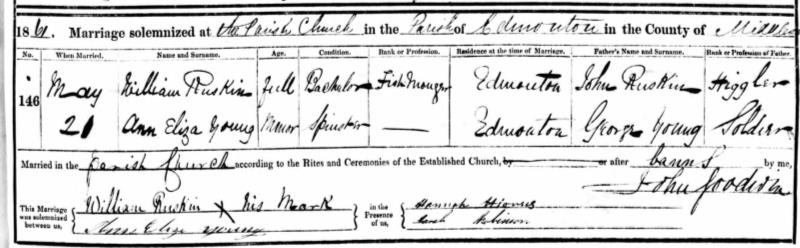 1861. Marriage solemnized at the Parish Church in the Parish of Edmonton in the County of Middlesex
No. When Married. Name and Surname. Age. Condition. Rank or Profession. Residence at the time of Marriage. Father's Name and Surname. Rank or Profession of Father.
146 May William Ruskin Full Bachelor Fish Monger Edmonton John Ruskin Higgler
20 Ann Eliza Young Minor Spinster — Edmonton George Young Soldier
Married in the Parish Church according to the Rites and Ceremonies of the Established Church, by or after banns by me,
John Goodwin
This Marriage was solemnized between us, William Ruskin X his Mark in the Presence of us, Hannah
Ann Eliza Young Sarah Robinson